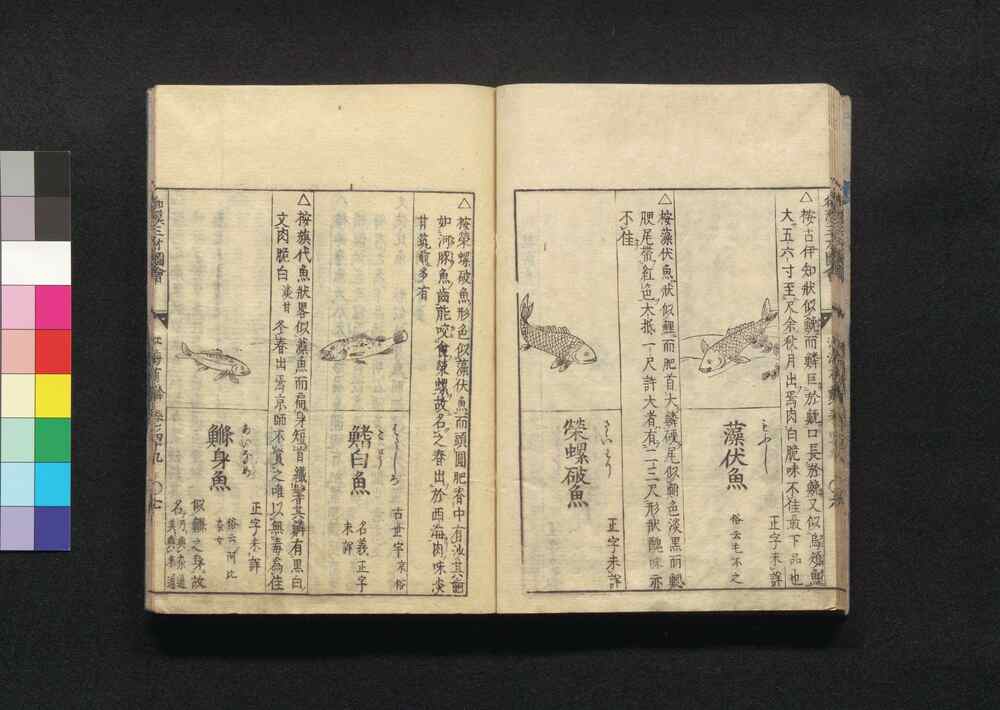 △按古伊知狀似鮸而鱗巨於鮸口長於鮸又似烏頰魚
大五六寸至尺余秋月出焉肉白脆味不佳最下品也
もぶし
藻伏魚
正字未詳
俗云毛不之
△按藻伏魚狀似鯉而肥首大鱗硬尾似鯛色淡黒而
肥尾帶紅色大抵一尺許大者有二三尺形狀醜味亦
不佳
さゞいわり
榮螺破魚
正字未詳
△按榮螺破魚形色似藻伏魚而頭圓肥脊中有沙其
如河豚魚齒能咬食榮螺故名之春出於西海肉味淡
甘筑前多有
はたしろ
鰭白魚
古世字未俗
名義正字
未詳
△按旗代魚狀畧似藻魚而扁身短首纖其鱗有黒白
文肉脆白淡甘冬春出焉京師不賞之唯以無毒為佳
あいなめ
鮴身魚
正字未詳
俗云阿比
奈女
似鰷之身故
名
和漢三才圖會
江海有鱗 卷之四十九 〇七